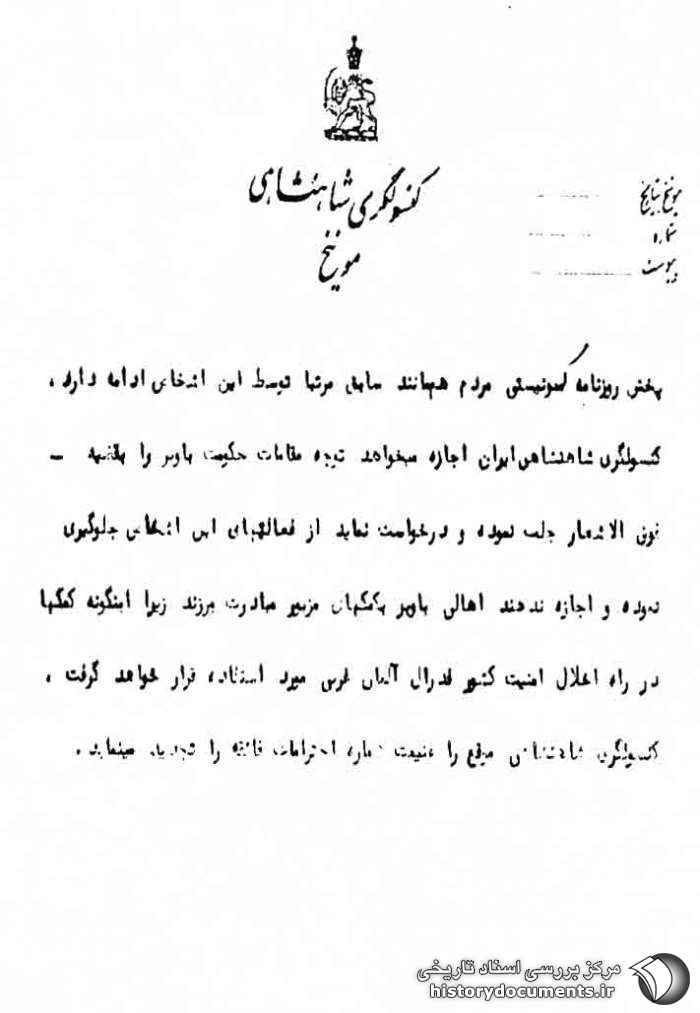 کنسولگری شاهنشاهی
مونیخ
مونیخ بتاریخ
شماره
پیوست
پخش روزنامه کمونیستی مردم همانند سابق مرتبا توسط این اشخاص ادامه دارد .
کنسولگری شاهنشاهی ایران اجازه میخواهد توجه مقامات حکومت باویر را بقضیه –
فوق الاشعار جلب نموده و درخواست نماید از فعالیتهای این اشخاص جلوگیری
نموده و اجازه ندهند اهالی باویر بکمکهای مزبور مبادرت ورزند زیرا اینگونه کمکها
در راه اخلال امنیت کشور فدرال آلمان غربی مورد استفاده قرار خواهد گرفت .
کنسولگری شاهنشاهی موقع را غنیمت شمارده احترامات فائقه را تجدید مینماید .
مرکز بررسی اسناد تاریخی
historydocuments.ir